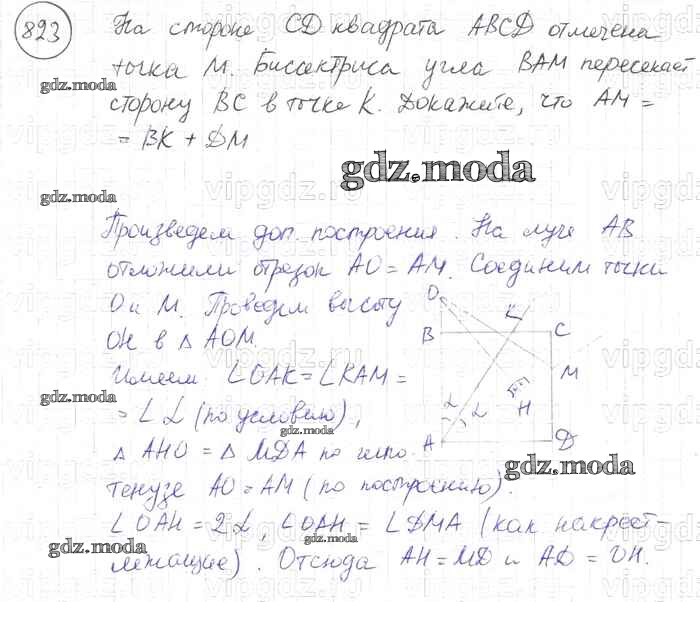 823 На стороне CD квадрата ABCD отмечена
точка M. Биссектриса угла BAM пересекает
gdz.moda
сторону BC в точке K. Докажите, что AM =
= BK + DM
gdz.moda
gdz.moda
Произведем доп. построения. На луче AB
отложили отрезок AO = AM. Соединим точки
O и M. Проведем высоту
OH в △ AOM.
Имеем ∠OAK = ∠KAM =
gdz.moda
= ∠α (по условию),
△ AHO = △ MDA по гипо-
тенузе AO = AM (по построению).
∠OAH = 2α, ∠OAH = ∠DMA (как накрест-
лежащие). Отсюда AH = MD и AD = OH.
gdz.moda
gdz.moda
gdz.moda
O
K
B
C
M
H
α
α
A
D
vipgdz.ru